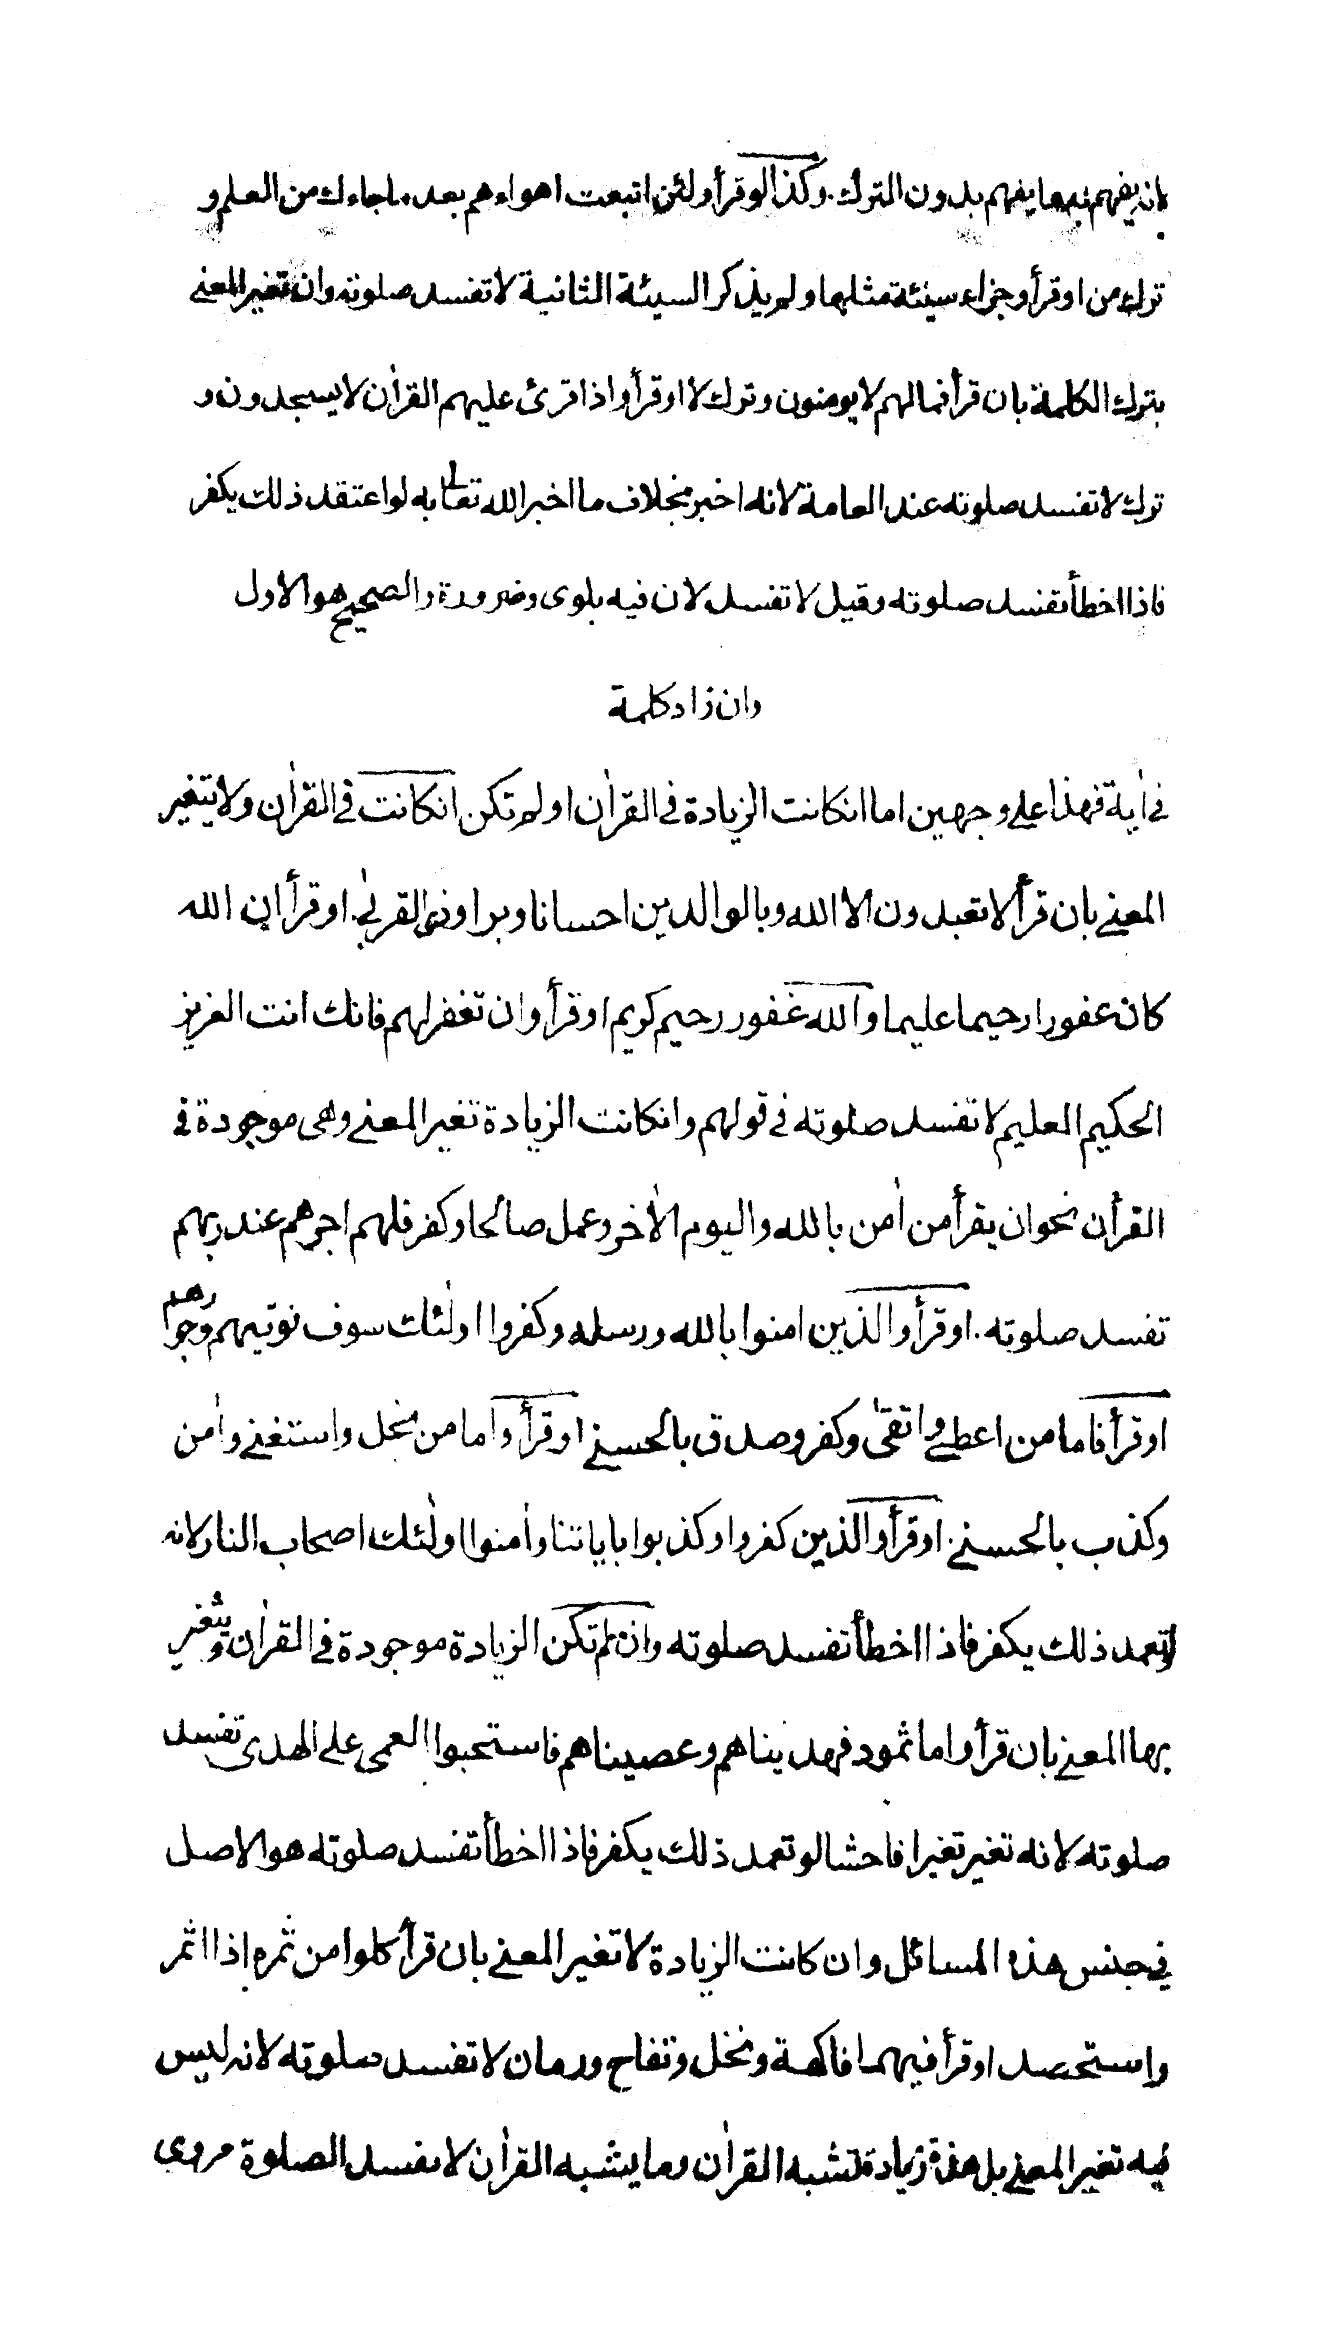 بانه يفهم به ما يفهم بدون الترك. وكذا لو قرأ ولئن اتبعت اهواءهم بعد ما جاءك من العلم و
ترك من او قرأ وجزاء سيئة مثلها ولم يذكر السيئة الثانية لا تفسد صلوته وان تغير المعنى
بترك الكلمة بان قرأ فمالهم لا يومنون وترك لا او قرأ واذا قرئ عليهم القرأن لا يسجدون و
ترك لا تفسد صلوته عند العامة لانه اخبر بخلاف ما اخبر الله تعالى به لو اعتقد ذلك يكفر
فاذا اخطأ تفسد صلوته وقيل لا تفسد لان فيه بلوى وضرورة والصحيح هو الاول
وان زاد كلمة
فى أية فهذا على وجهين اما انكانت الزيادة فى القرأن او لم تكن انكانت فى القرأن ولا يتغير
المعنى بان قرأ لا تعبدون الا الله وبالوالدين احسانا وبرا وذى القربى. او قرأ ان الله
كان غفورا رحيما عليما والله غفور رحيم كريم او قرأ وان تغفر لهم فانك انت العزيز
الحكيم العليم لا تفسد صلوته فى قولهم وانكانت الزيادة تغير المعنى وهى موجودة فى
القرأن نحو ان يقرأ من أمن بالله واليوم الأخر وعمل صالحا وكفر فلهم اجرهم عند ربهم
تفسد صلوته. او قرأ والذين امنوا بالله ورسله وكفروا اولٰئك سوف نوتيهم اجورهم
او قرأ فاما من اعطى واتقى وكفر وصدق بالحسنى او قرأ واما من بخل واستغنى وأمن
وكذب بالحسنى. او قرأ والذين كفروا وكذبوا باياتنا وأمنوا اولٰئك اصحاب النار لانه
لو تعمد ذلك يكفر فاذا اخطأ تفسد صلوته وان لم تكن الزيادة موجودة فى القرأن ويتغير
بها المعنى بان قرأ واما ثمود فهديناهم وعصيناهم فاستحبوا العمى على الهدى تفسد
صلوته لانه تغير تغيرا فاحشا لو تعمد ذلك يكفر فاذا اخطأ تفسد صلوته هو الاصل
فى جنس هذه المسائل وان كانت الزيادة لا تغير المعنى بان قرأ كلوا من ثمره اذا اثمر
واستحصد او قرأ فيهما فاكهة ونخل وتفاح ورمان لا تفسد صلوته لانه ليس
فيه تغير المعنى بل هذه زيادة تشبه القرأن وما يشبه القرأن لا يفسد الصلوة مروى